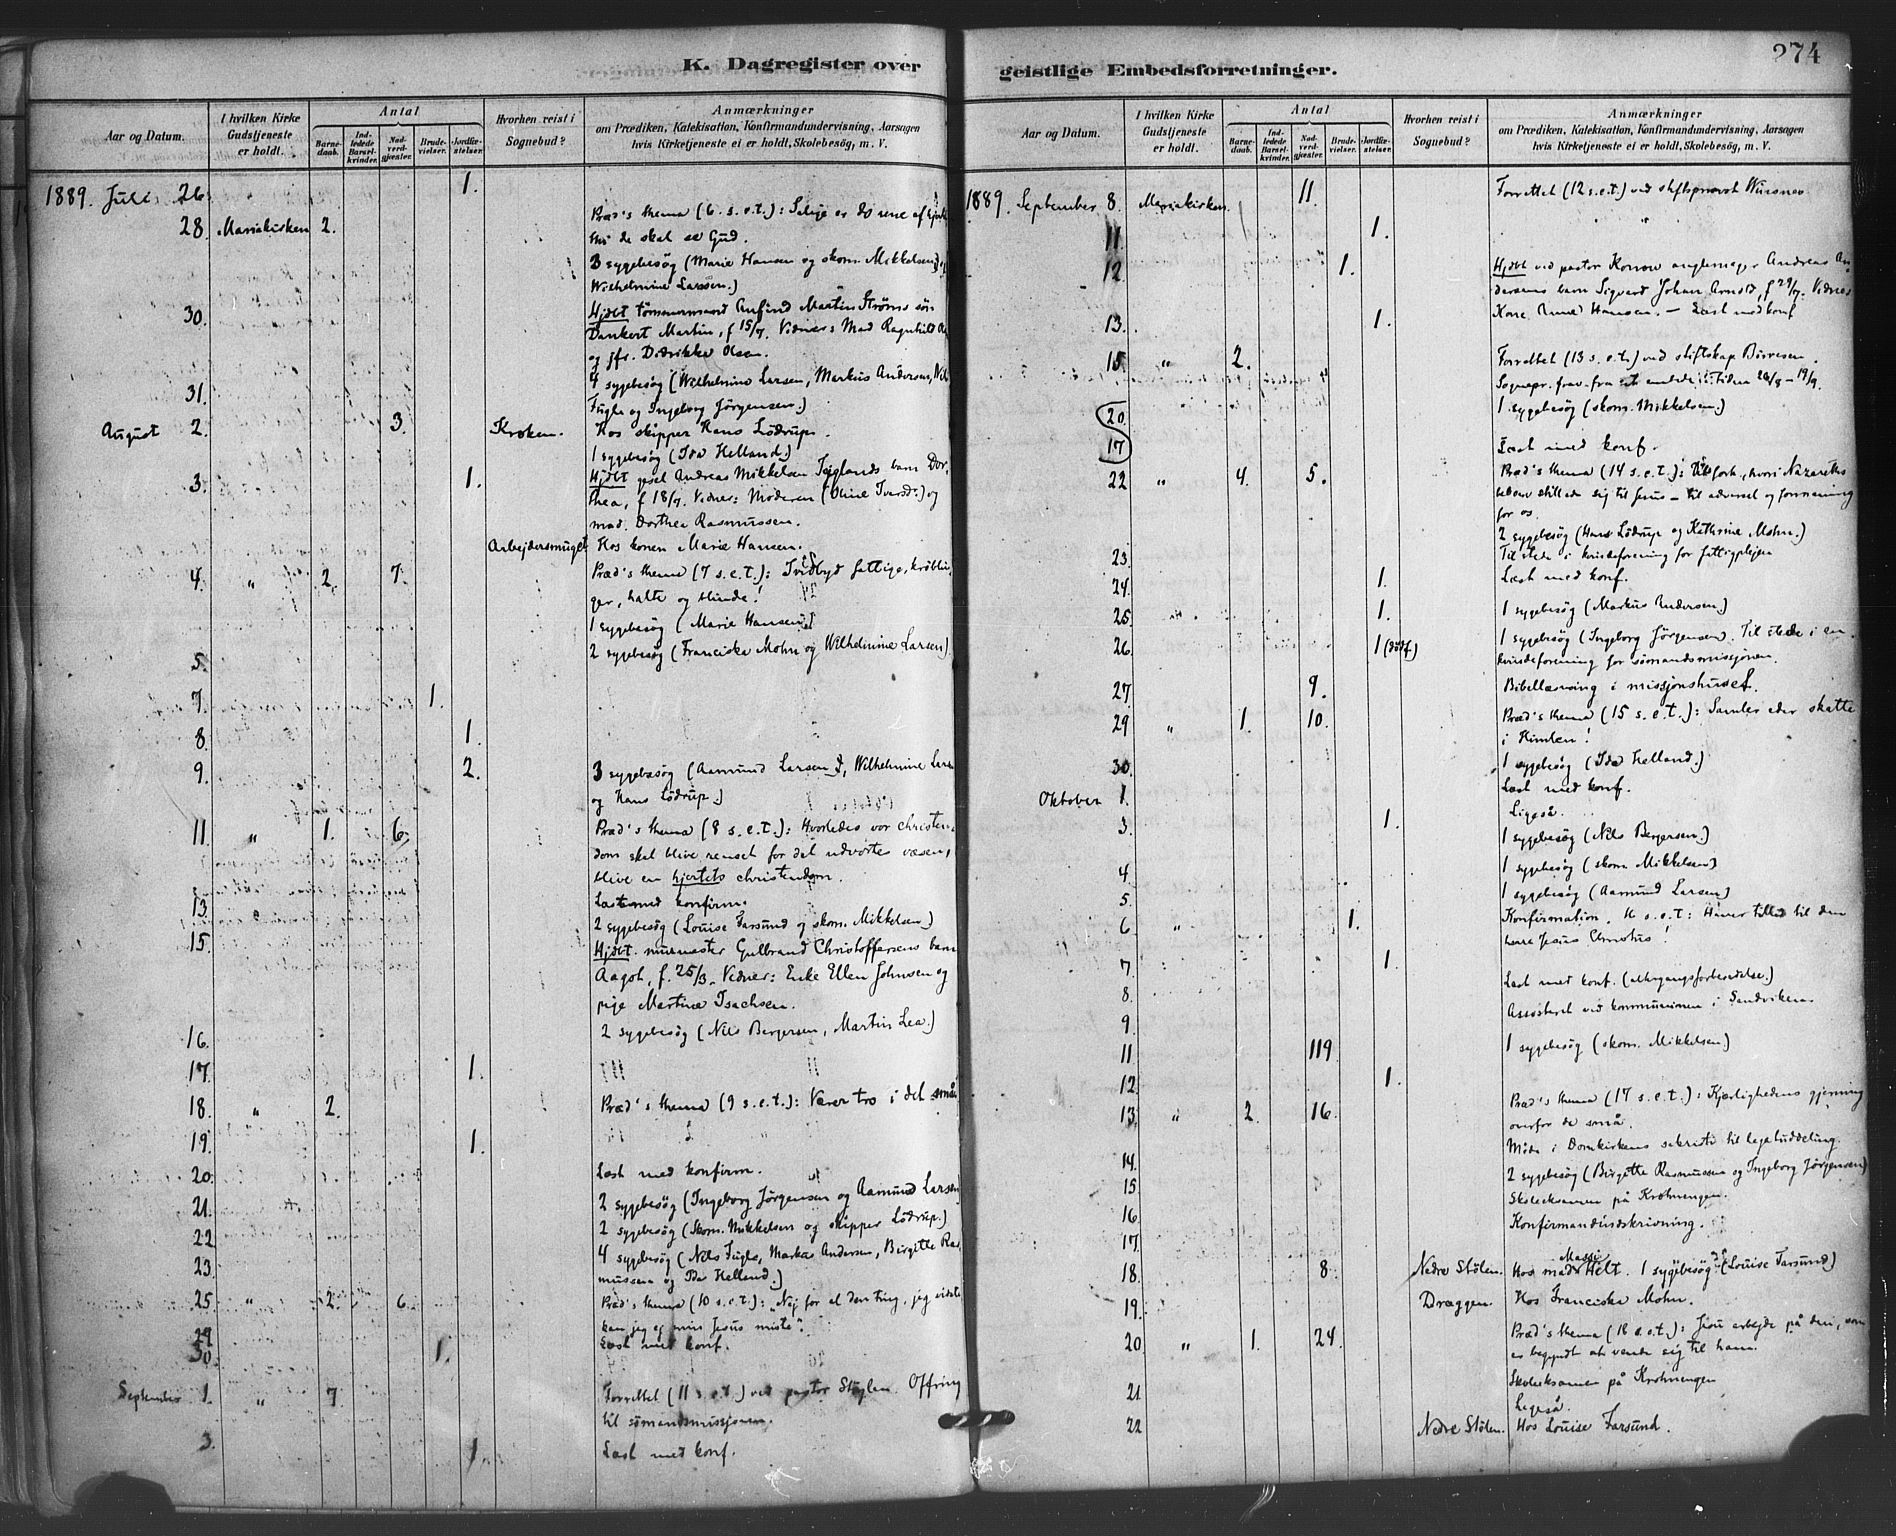 K. Dagregister over
Aar og Datum.
I hvilken Kirke Gudstjeneste er holdt.
Antal
Barnedaab.
Indledede Barselkvinder.
Nadverdgjester.
Brudevielser.
Jordfæstelser.
Hvorhen reist i Sognebud?
Anmærkninger
om Prædiken, Katekisation, Konfirmandundervisning, Aarsagen
hvis Kirketjeneste ei er holdt, Skolebesøg, m. V.
1889. Juli 26. 1.
28. Mariakirken 2. Præd's thema (6. s. e. t.): Salige er de rene af hjertet
thi de skal se Gud.
3 sygebesøg (Marie Hansen og skom. Mikkelsen og
Wilhelmine Larssen.)
30. Hjdbt tømmermand Anfind Martin Strøms søn
Dankert Martin, f 15/7. Vidner: Mad Ragnhild
og jfr. Didrikke Olsen.
31. 4 sygebesøg (Wilhelmine Larsen, Markus Andersen, Nils
Fugle og Ingeborg Jørgensen.)
August 2. 3. Kroken. Hos skipper Hans Lødrup.
1 sygebesøg (Ida Helland.)
3. 1. Hjdbt gesel Andreas Mikkelsen barn Dor-
thea, f 18/7. Vidner: Moderen (Oline Iversd.) og
mad. Dorthea Rasmussen.
Arbejdersmuget Hos konen Marie Hansen.
4. " 2. 7. Præd's thema (7 s. e. t.): Indbyd fattige, krøblin-
ger, halte og blinde!
1 sygebesøg (Marie Hansen)
5. 2 sygebesøg (Franciska Mohn og Wilhelmine Larsen)
7. 1.
8. 1.
9. 2. 3 sygebesøg (Aamund Larsen, Wilhelmine Larsen
og Hans Lødrup.)
11. " 1. 6. Præd's thema (8 s. e. t.): Hvorledes vor christen-
dom skal blive renset for det udvortes væsen,
blive en hjertets christendom.
13. Læst med konfirm.
15. 2 sygebesøg (Louise Farsund og skom. Mikkelsen)
Hjdbt. murmester Gulbrand Christoffersens barn
Aagot, f. 25/3. Vidner: Enke Ellen Johnsen og
pige Martina Isachsen.
16. 2 sygebesøg (Nils Bergersen, Martin Lea.)
17. 1.
18. " 2. Præd's thema (9 s. e. t.): Værer tro i det små!
19. 1.
20. Læst med konfirm.
21. 2 sygebesøg (Ingeborg Jørgensen og Aamund Larsen)
22 2 sygebesøg (Skom. Mikkelsen og skipper Lødrup.)
23. 4 sygebesøg (Nils Fugle, Markus Andersen, Birgitte Ras-
mussen og Ida Helland.)
25. " 2. 6. Præd's thema (10 s. e. t.): "Nej for al den ting, jeg vidste
kan jeg ej min Jesus miste".
29. Læst med konf.
30. 1.
September 1. " 7. Forrettet (11 s. e. t.) ved pastor Støylen. Offring
til sømandsmissjonen.
3. 1. Læst med konf.
geistlige Embedsforretninger.
274
Aar og Datum.
I hvilken Kirke Gudstjeneste er holdt.
Antal
Barnedaab.
Indledede Barselkvinder.
Nadverdgjester.
Brudevielser.
Jordfæstelser.
Hvorhen reist i Sognebud?
Anmærkninger
om Prædiken, Katekisation, Konfirmandundervisning, Aarsagen
hvis Kirketjeneste ei er holdt, Skolebesøg, m. V.
1889. September 8. Mariakirken. 11. Forrettet (12 s. e. t.) ved stiftsprovst
11. 1. "
12. 1. Hjdbt ved pastor Konow Andreas An-
dersens barn Sigvard Johan Arnold, f 29/7. Vidner
13. 1. Kone Hansen. — Læst med konf
15. " 2. Forrettet (13 s. e. t.) ved stiftskap
Sognepr. frav. fra sit embede i tiden 28/8 – 19/9.
20. 1 sygebesøg (skom. Mikkelsen.)
17 Læst med konf.
22 " 4. 5. Præd's thema (14 s. e. t.): hvori Nazareths
stillede sig til Jesus — til advarsel og formaning
for os.
2 sygebesøg (Hans Lødrup og Kathrine Mohn.)
23. Til stede i kvindeforening for fattigplejen
24. 1. Læst med konf.
25. 1. 1 sygebesøg (Markus Andersen.)
26. 1 1 sygebesøg (Ingeborg Jørgensen. Til stede i en
kvindeforening for sømandsmissjonen.
27 9. Bibellæsning i missjonshuset.
29 " 1. 10. Præd's thema (15 s. e. t.): Samler eder skatte
i Himlen!
30. 1 sygebesøg (Ida Helland.)
Oktober 1. Læst med konf.
Ligeså.
3. 1. 1 sygebesøg (Nils Bergersen.)
4. 1 sygebesøg (skom. Mikkelsen)
5. 1 sygebesøg (Aamund Larsen)
6 " 1. Konfirmation. 16 s. e. t: Haver tillid til den
herre Jesus Christus!
7. 1.
8. Læst med konf. (altergangsforberedelse.)
9. Assisteret ved kommunionen i Sandviken
11 119 1 sygebesøg (skom. Mikkelsen)
12. 1.
13. " 2. 16. Præd's thema (17 s. e. t.): Kjærlighedens gjerning
overfor de små.
14. Møde i Domkirkens sakristi til legatuddeling.
15 2 sygebesøg (Birgitte Rasmussen og Ingeborg Jørgensen)
16. Skoleeksamen på Krohnengen.
17. Konfirmandindskrivning.
18 8. Nedre Stølen. Hos mad. Holt. 1 sygebesøg (Louise Farsund)
19. Dræggen. Hos Franciska Mohn.
20 " 1. 24. Præd's thema (18 s. e. t.): Jesu arbejde på den, som
er begyndt at vende sig til ham.
21. Skoleeksamen på Krohnengen
Ligeså.
22 Nedre Stølen. Hos Louise Farsund.